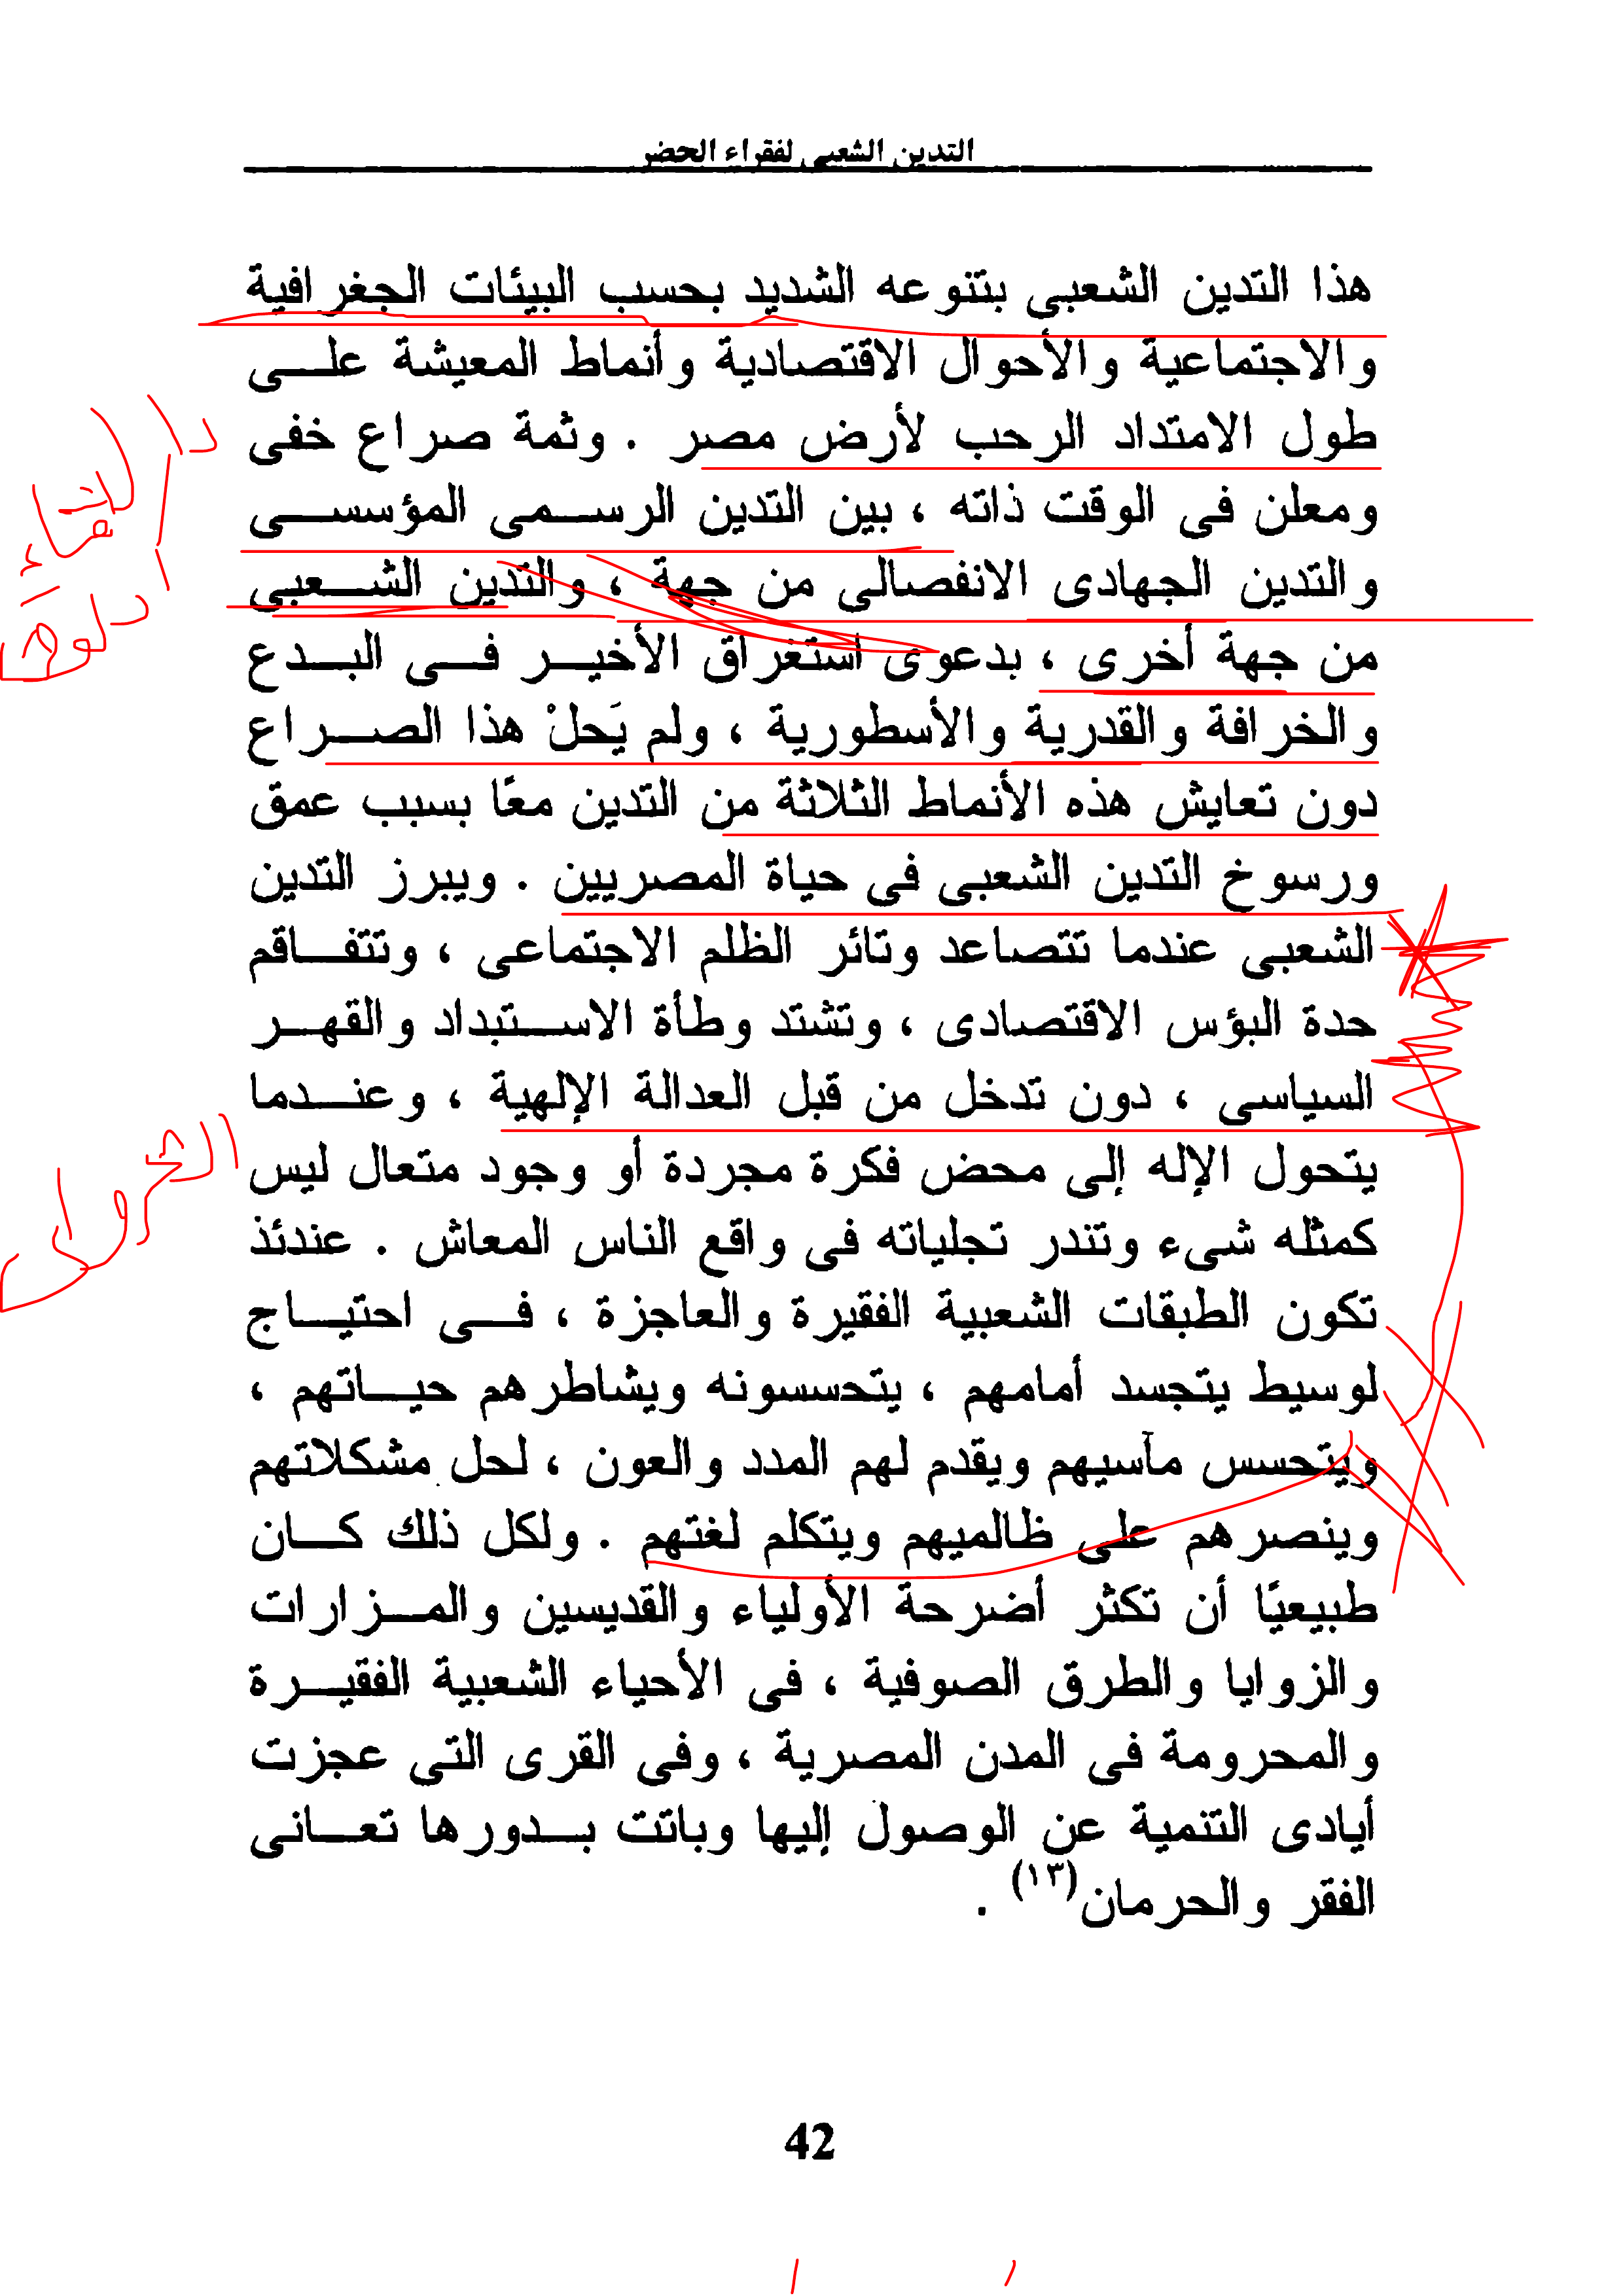 التدين الشعبى لفقراء الحضر
هذا التدين الشعبى بتنوعه الشديد بحسب البيئات الجغرافية
والاجتماعية والأحوال الاقتصادية وأنماط المعيشة علــى
طول الامتداد الرحب لأرض مصر . وثمة صراع خفى
ومعلن فى الوقت ذاته ، بين التدين الرســمى المؤسســى
والتدين الجهادى الانفصالى من جهة ، والتدين الشــعبى
من جهة أخرى ، بدعوى استغراق الأخيــر فــى البــدع
والخرافة والقدرية والأسطورية ، ولم يَحلْ هذا الصــراع
دون تعايش هذه الأنماط الثلاثة من التدين معًا بسبب عمق
ورسوخ التدين الشعبى فى حياة المصريين . ويبرز التدين
الشعبى عندما تتصاعد وتائر الظلم الاجتماعى ، وتتفــاقم
حدة البؤس الاقتصادى ، وتشتد وطأة الاســتبداد والقهــر
السياسى ، دون تدخل من قبل العدالة الإلهية ، وعنــدما
يتحول الإله إلى محض فكرة مجردة أو وجود متعال ليس
كمثله شىء وتندر تجلياته فى واقع الناس المعاش . عندئذ
تكون الطبقات الشعبية الفقيرة والعاجزة ، فــى احتيــاج
لوسيط يتجسد أمامهم ، يتحسسونه ويشاطرهم حيــاتهم ،
ويتحسس مآسيهم ويقدم لهم المدد والعون ، لحل مشكلاتهم
وينصرهم على ظالميهم ويتكلم لغتهم . ولكل ذلك كــان
طبيعيًا أن تكثر أضرحة الأولياء والقديسين والمــزارات
والزوايا والطرق الصوفية ، فى الأحياء الشعبية الفقيــرة
والمحرومة فى المدن المصرية ، وفى القرى التى عجزت
أيادى التنمية عن الوصول إليها وباتت بــدورها تعــانى
الفقر والحرمان(١٣) .
42